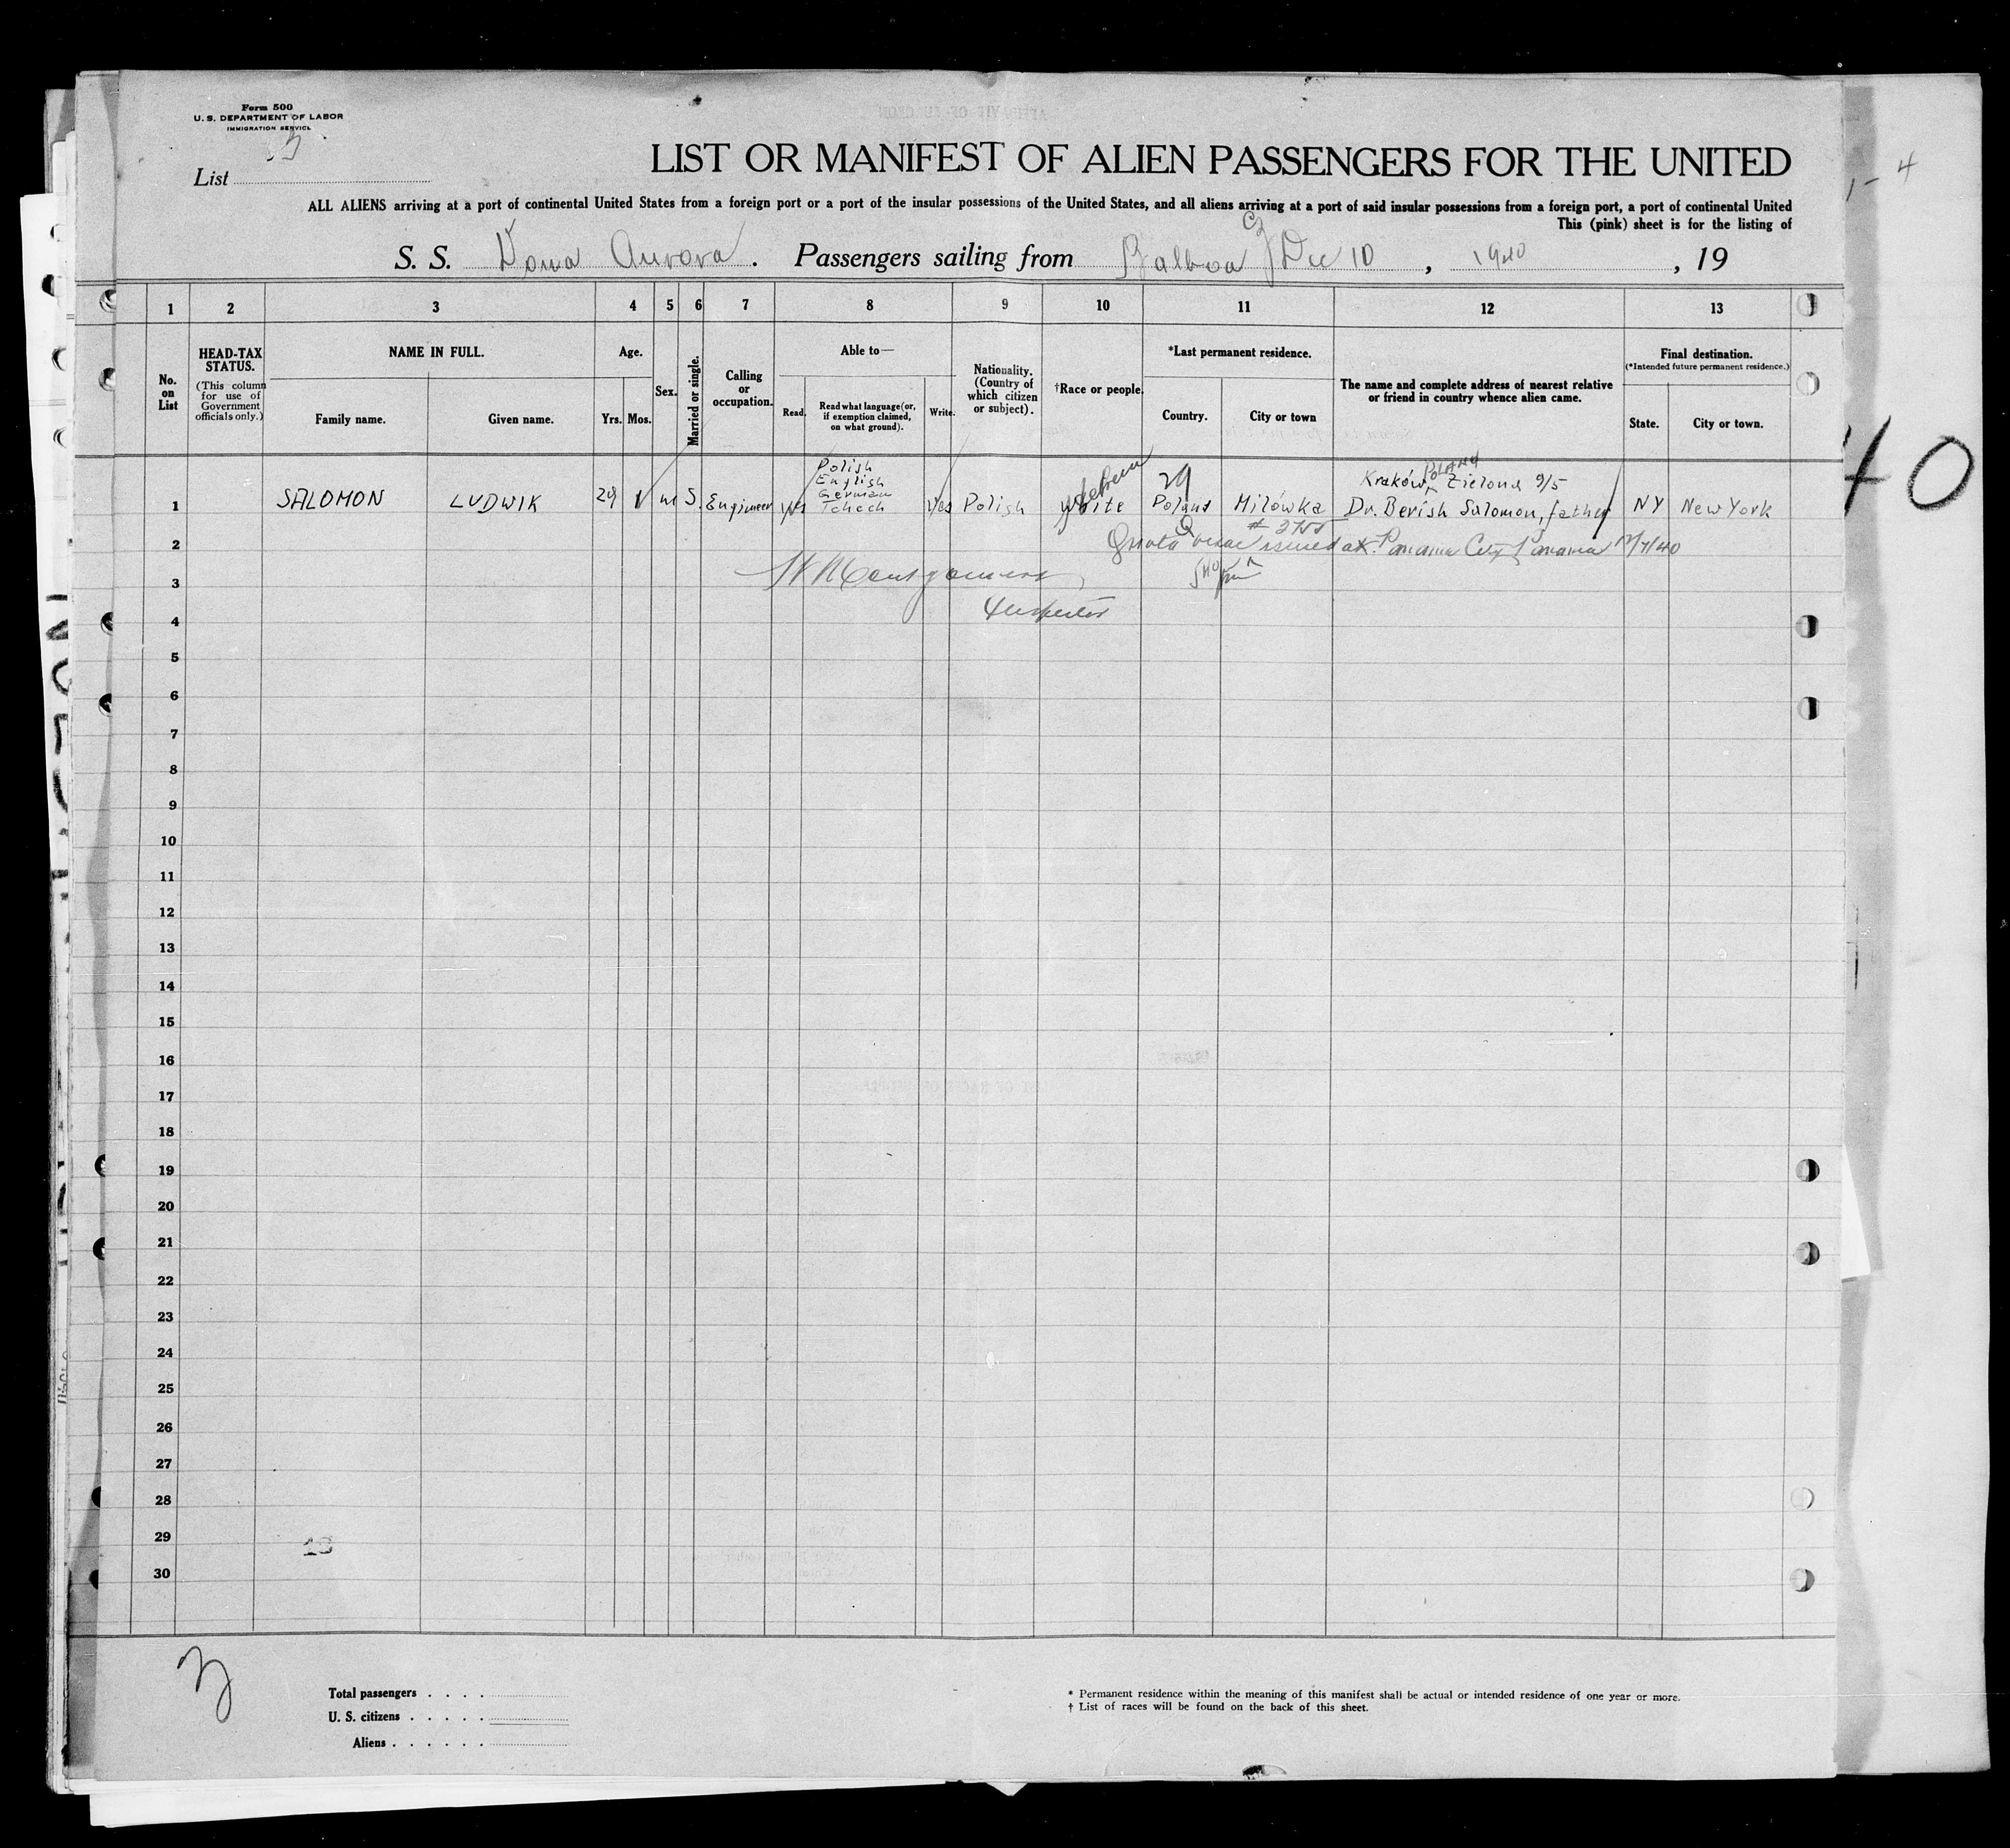 Form 500
U. S. DEPARTMENT OF LABOR
IMMIGRATION SERVICE
3
List
LIST OR MANIFEST OF ALIEN PASSENGERS FOR THE UNITED
ALL ALIENS arriving at a port of continental United States from a foreign port or a port of the insular possessions of the United States, and all aliens arriving at a port of said insular possessions from a foreign port, a port of continental United
This (pink) sheet is for the listing of
S. S. Dona Aurora. Passengers sailing from Balboa CZ Dec 10, 1940, 19
1 2 3 4 5 6 7 8 9 10 11 12 13
No. on List
HEAD-TAX STATUS.
(This column for use of Government officials only.)
NAME IN FULL.
Family name. Given name.
Age.
Yrs. Mos.
Sex.
Married or single.
Calling or occupation.
Able to—
Read. Read what language (or, if exemption claimed, on what ground). Write.
Nationality. (Country of which citizen or subject).
†Race or people.
*Last permanent residence.
Country. City or town
The name and complete address of nearest relative or friend in country whence alien came.
Final destination.
(*Intended future permanent residence.)
State. City or town.
Polish
English
German
Tchech
Hebrew
29
Kraków, POLAND Zielona 9/5
1 SALOMON LUDWIK 29 m S. Engineer yes yes Polish white Poland Milówka Dr. Berish Salomon, father NY New York
2 Quota visa issued at Panama City Panama 12/7/40
3 Montgomery
4 Inspector
5
6
7
8
9
10
11
12
13
14
15
16
17
18
19
20
21
22
23
24
25
26
27
28
29
30
Total passengers . . . .
U. S. citizens . . . . .
Aliens . . . . . .
* Permanent residence within the meaning of this manifest shall be actual or intended residence of one year or more.
† List of races will be found on the back of this sheet.
4
40